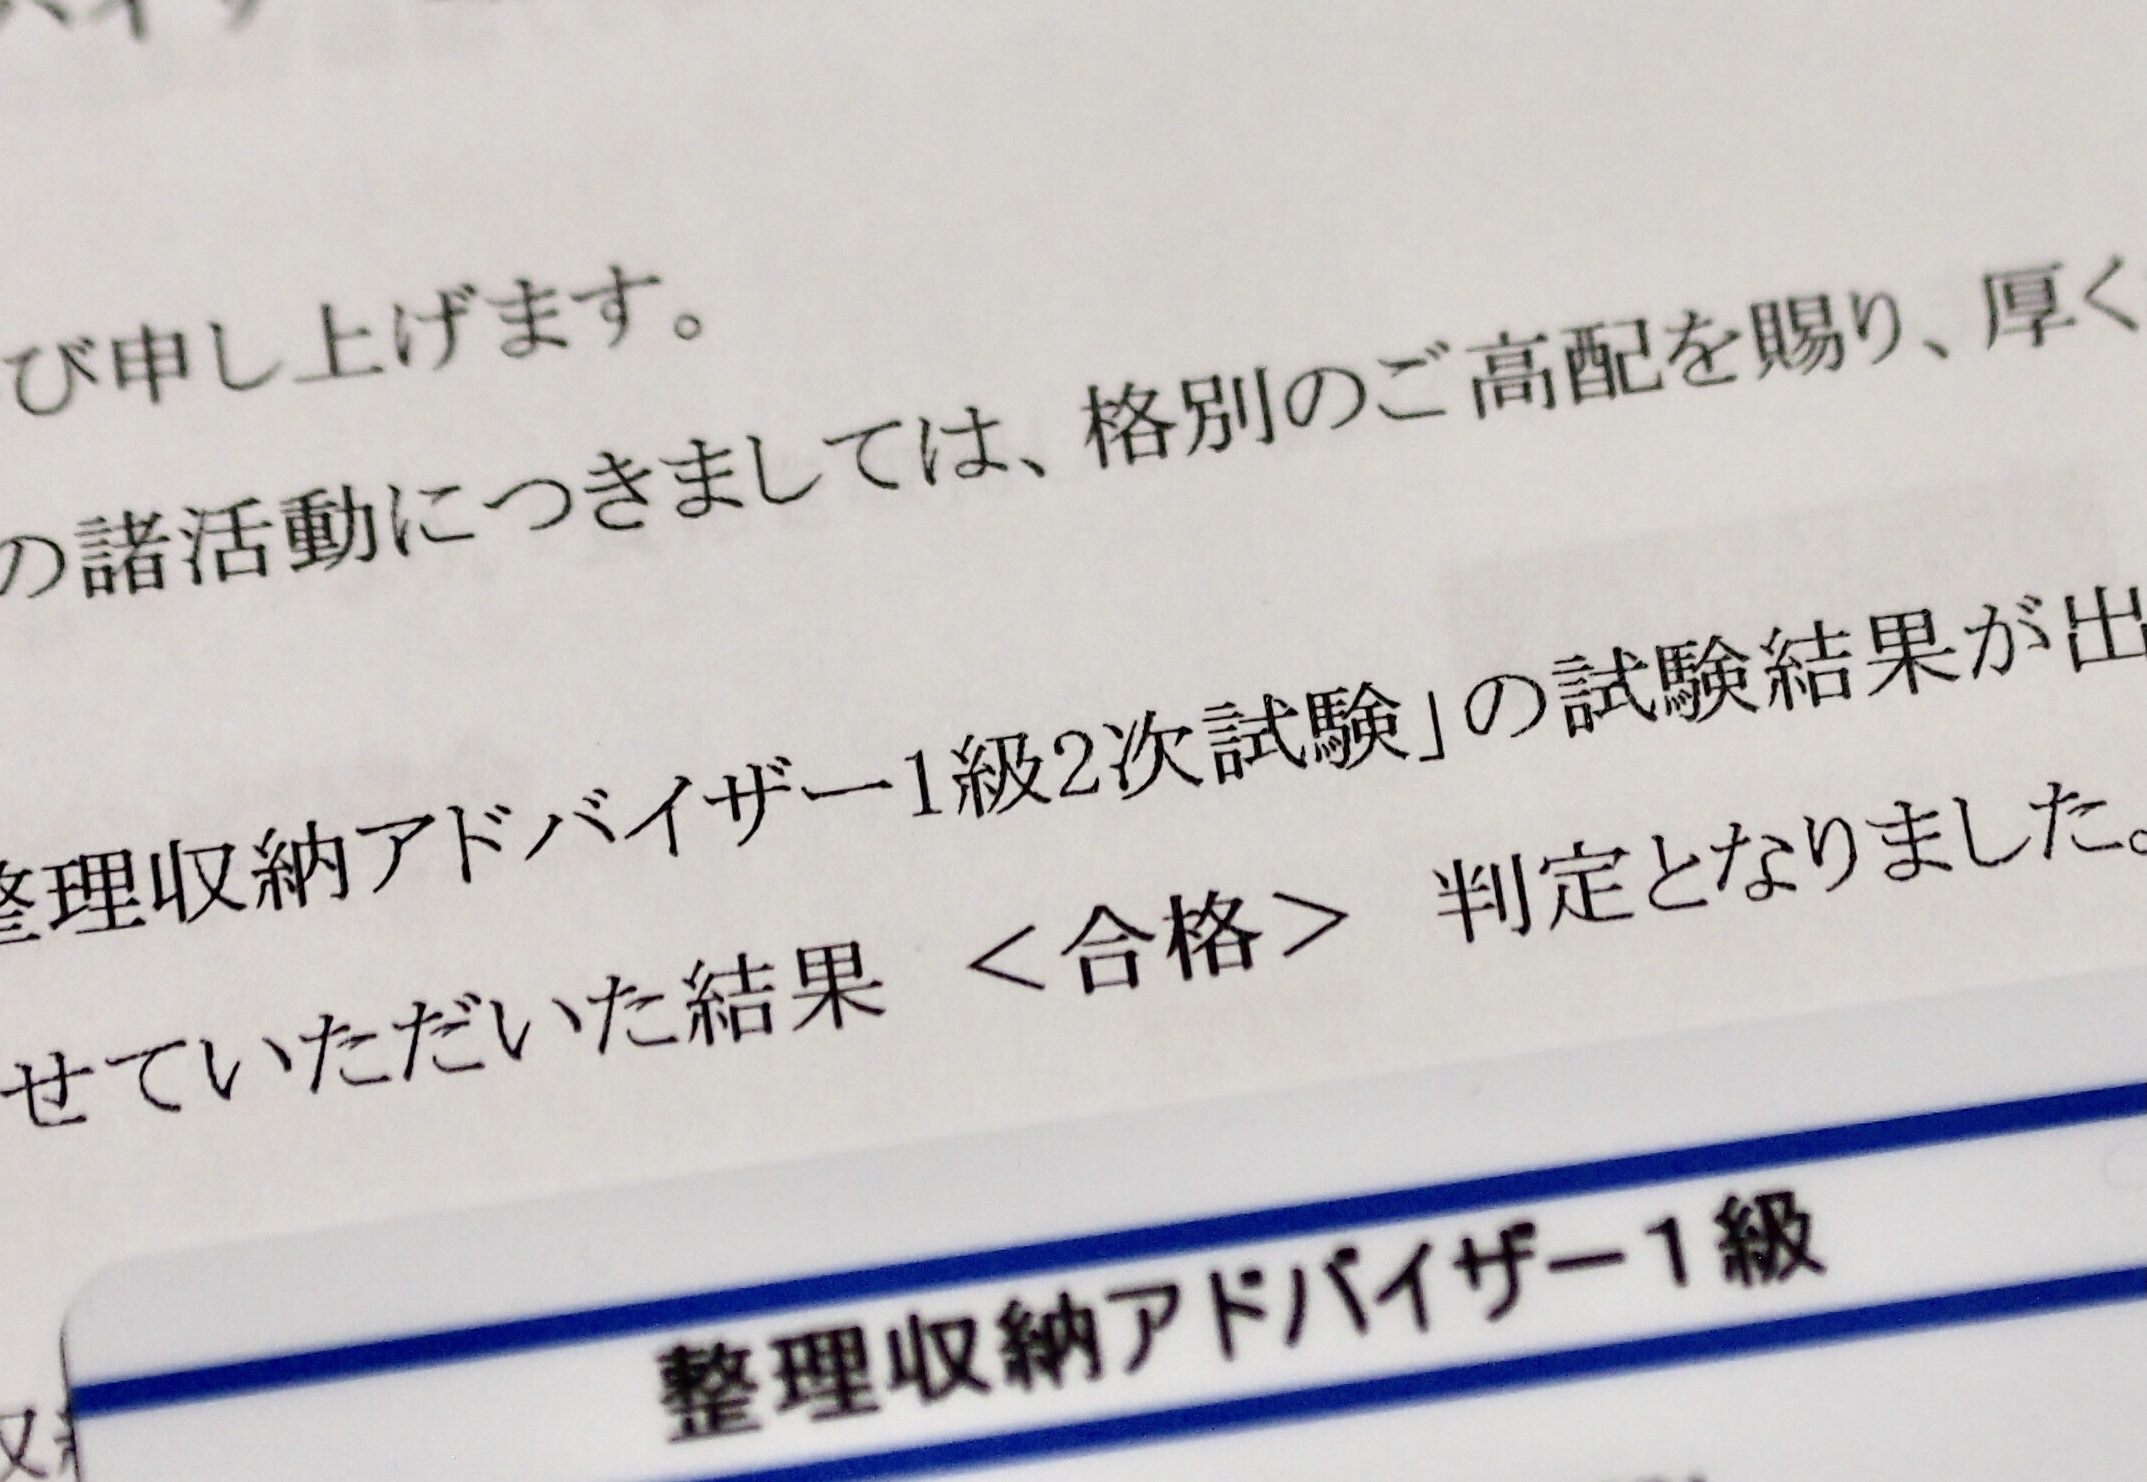 び申し上げます。
の諸活動につきましては、格別のご高配を賜り、厚く
整理収納アドバイザー1級2次試験」の試験結果が出
せていただいた結果 ＜合格＞ 判定となりました。
整理収納アドバイザー1級